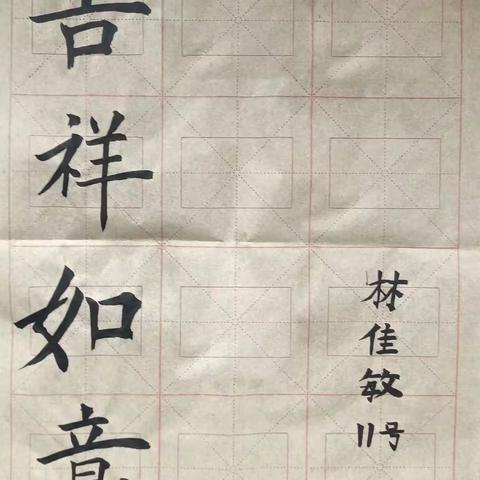 吉祥如意
林佳敏
11号